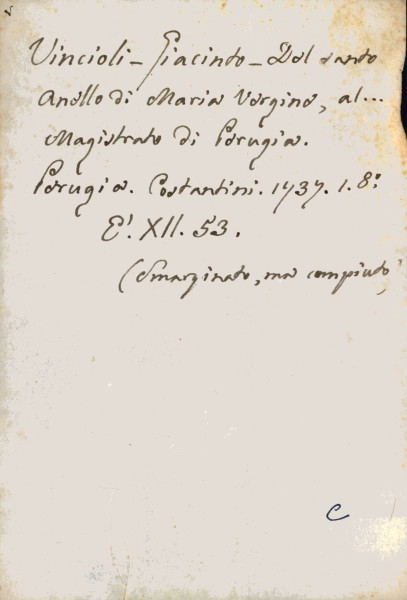 Vincioli - Giacinto - Del santo
Anello di Maria Vergine, al...
Magistrato di Perugia.
Perugia. Costantini. 1737. 1. 8º
E'. XII. 53.
(Smarginato, ma compiuto)
C